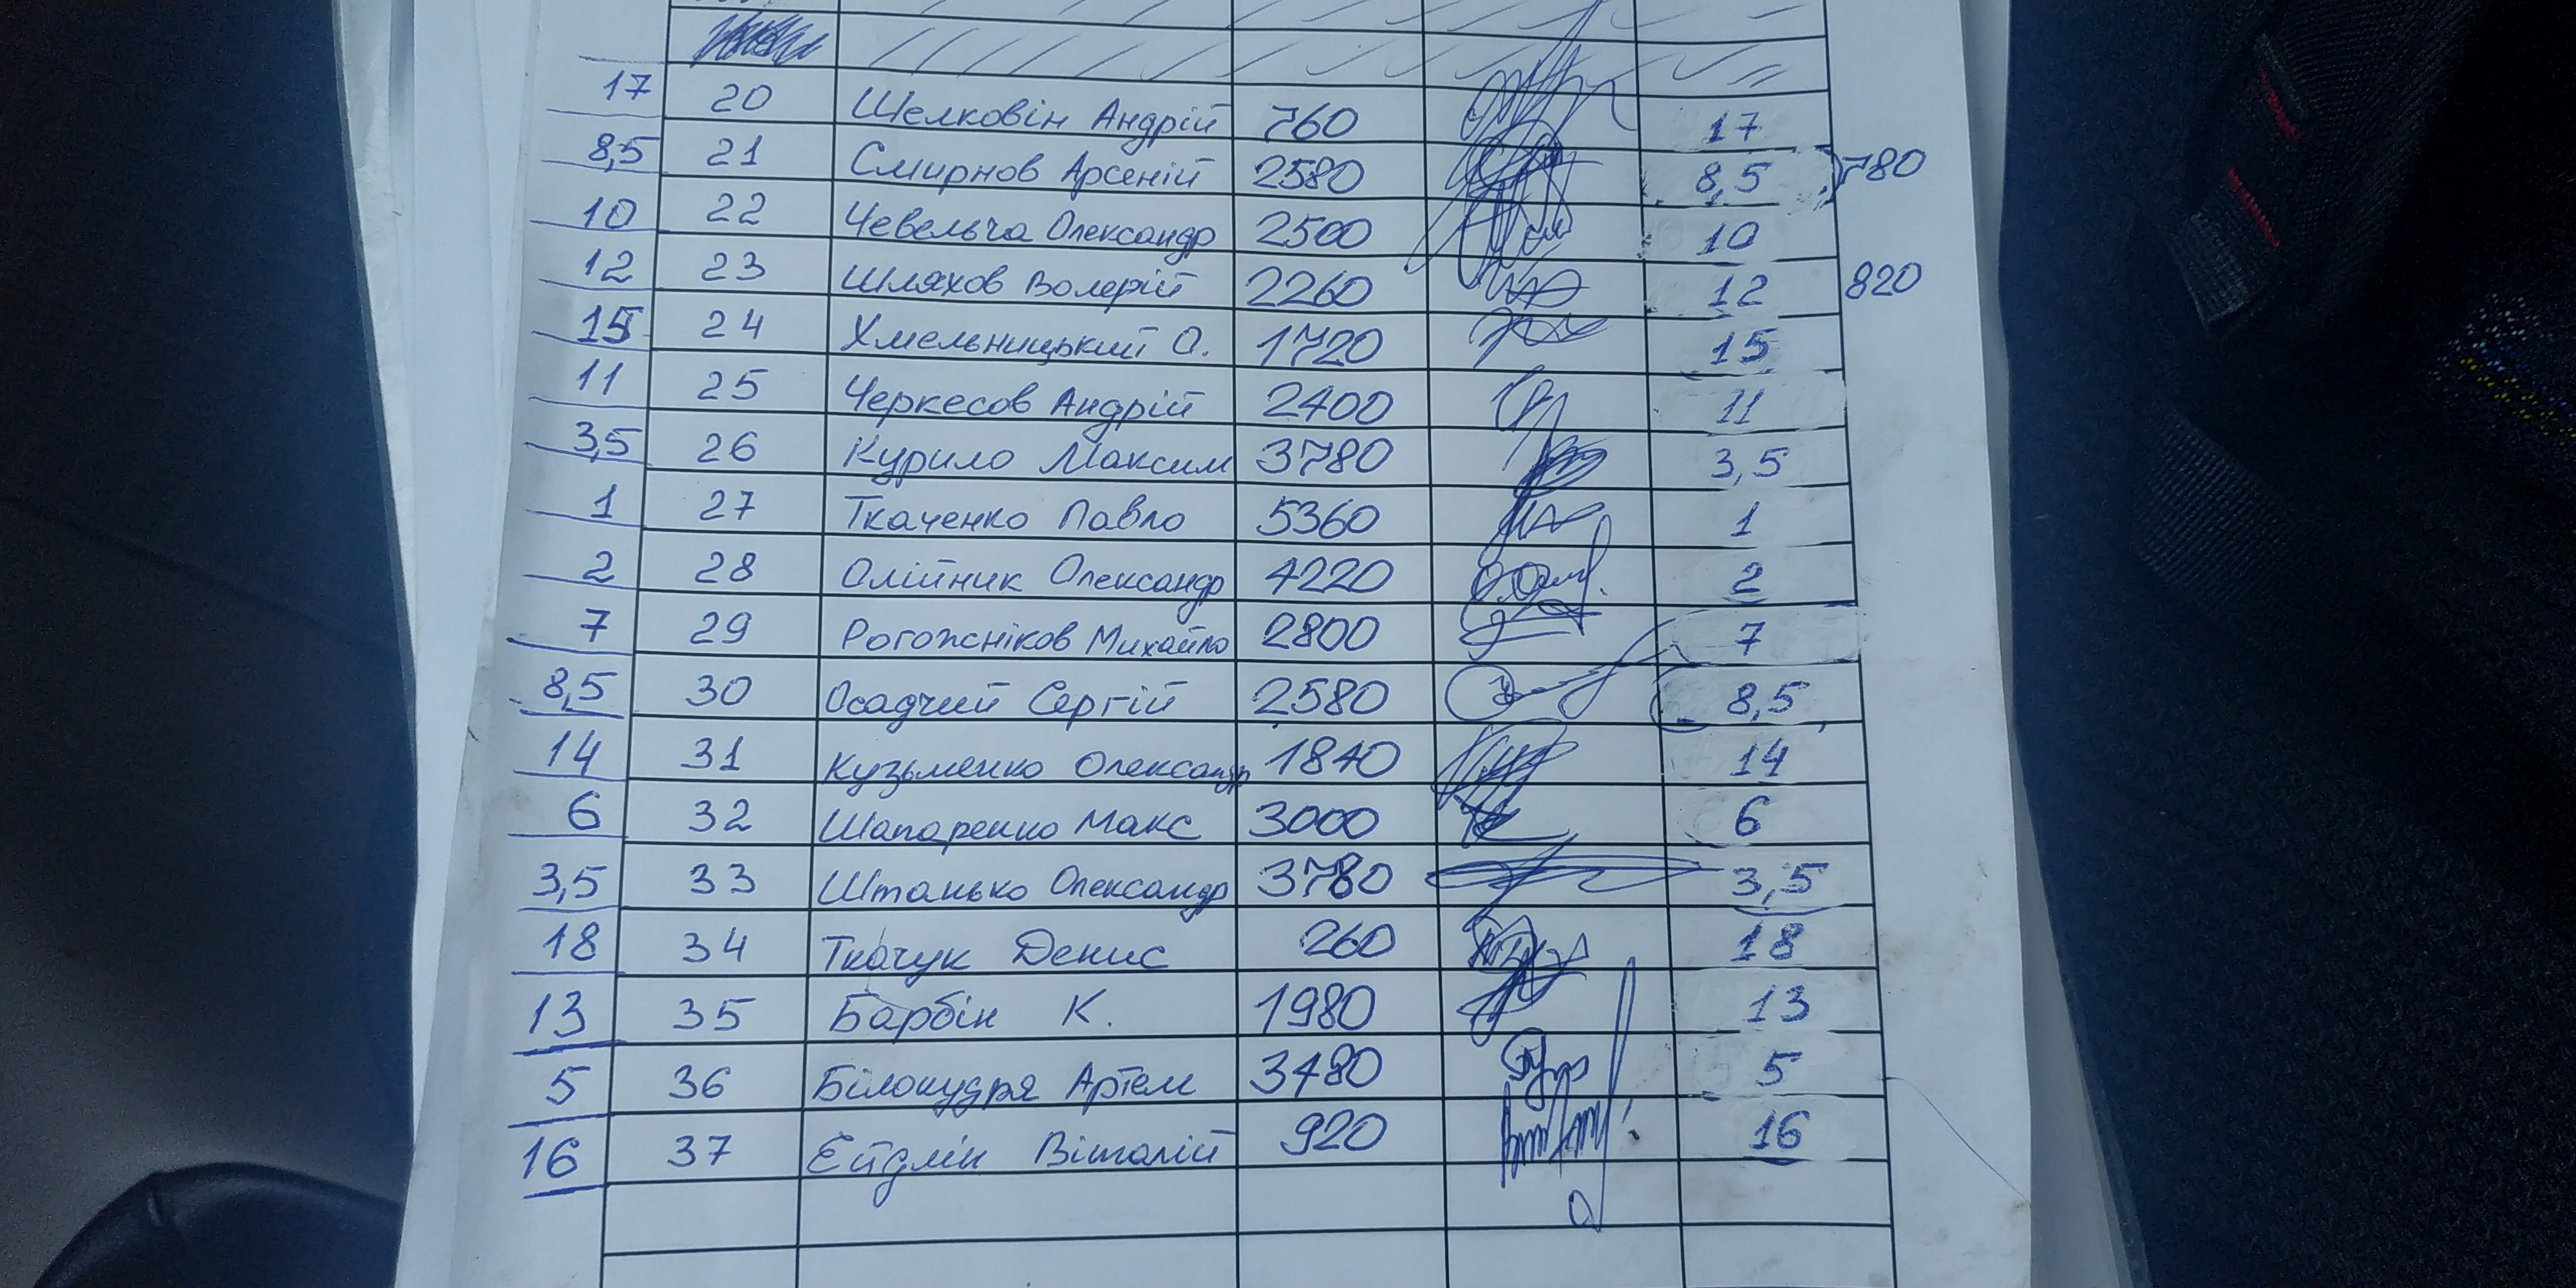 17 20 Шелковін Андрій 760 17
8,5 21 Смирнов Арсеній 2580 8,5 780
10 22 Чевельча Олександр 2500 10
12 23 Шляхов Валерій 2260 12 820
15 24 Хмельницький О. 1720 15
11 25 Черкесов Андрій 2400 11
3,5 26 Курило Максим 3780 3,5
1 27 Ткаченко Павло 5360 1
2 28 Олійник Олександр 4220 2
7 29 Рогожніков Михайло 2800 7
8,5 30 Осадчий Сергій 2580 8,5
14 31 Кузьменко Олександр 1840 14
6 32 Шапаренко Макс 3000 6
3,5 33 Штанько Олександр 3780 3,5
18 34 Ткачук Денис 260 18
13 35 Барбін К. 1980 13
5 36 Білокудря Артем 3480 5
16 37 Ейдлін Віталій 920 16